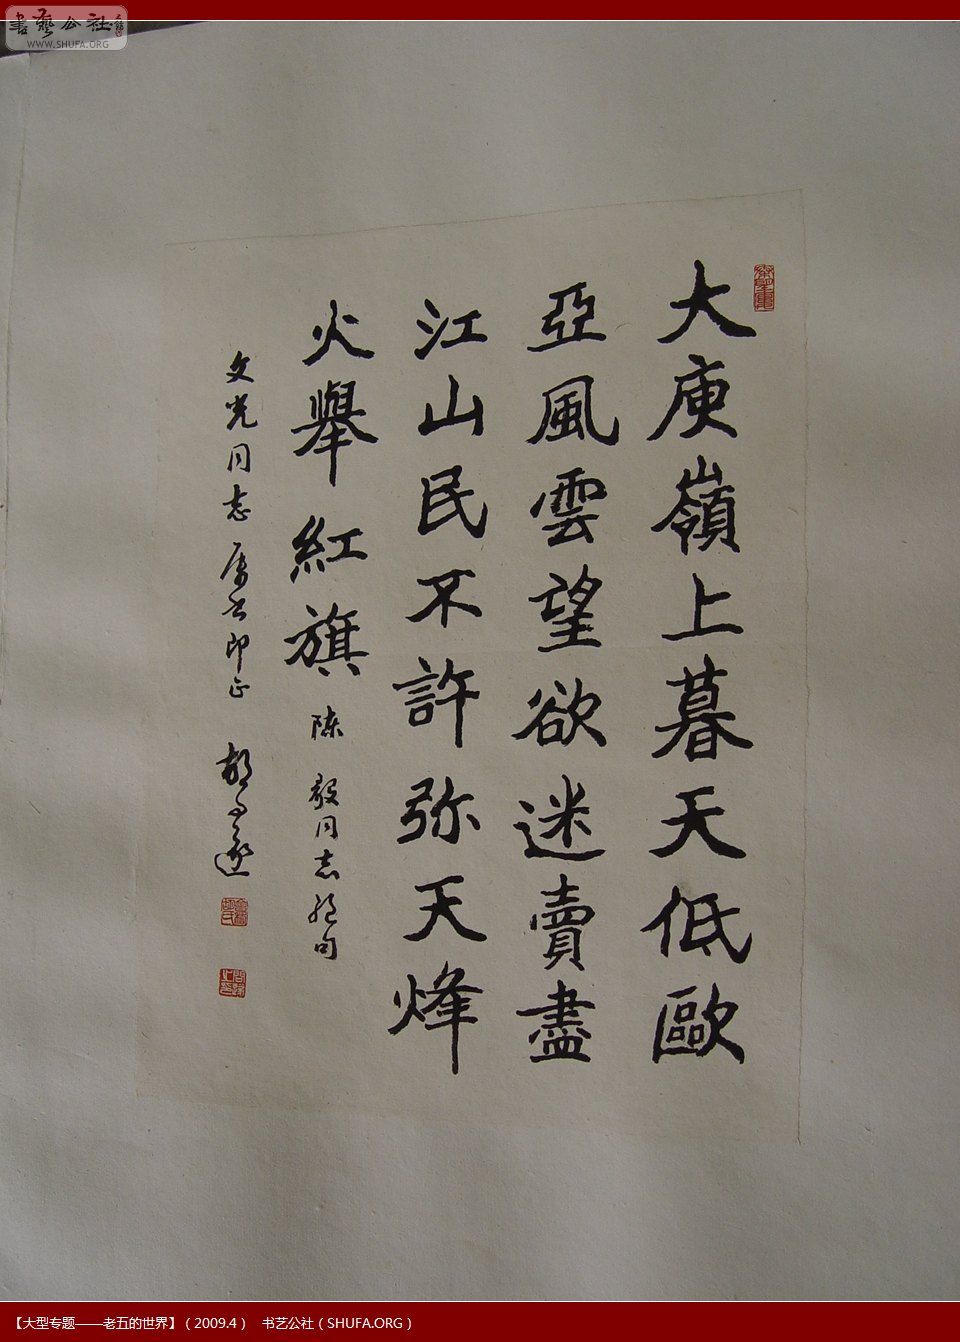 书艺公社
WWW.SHUFA.ORG
大庾嶺上暮天低歐
亞風雲望欲迷賣盡
江山民不許弥天烽
火舉紅旗 陳毅同志絶句
文光同志属书即正 胡问遂
【大型专题——老五的世界】（2009.4） 书艺公社（SHUFA.ORG）